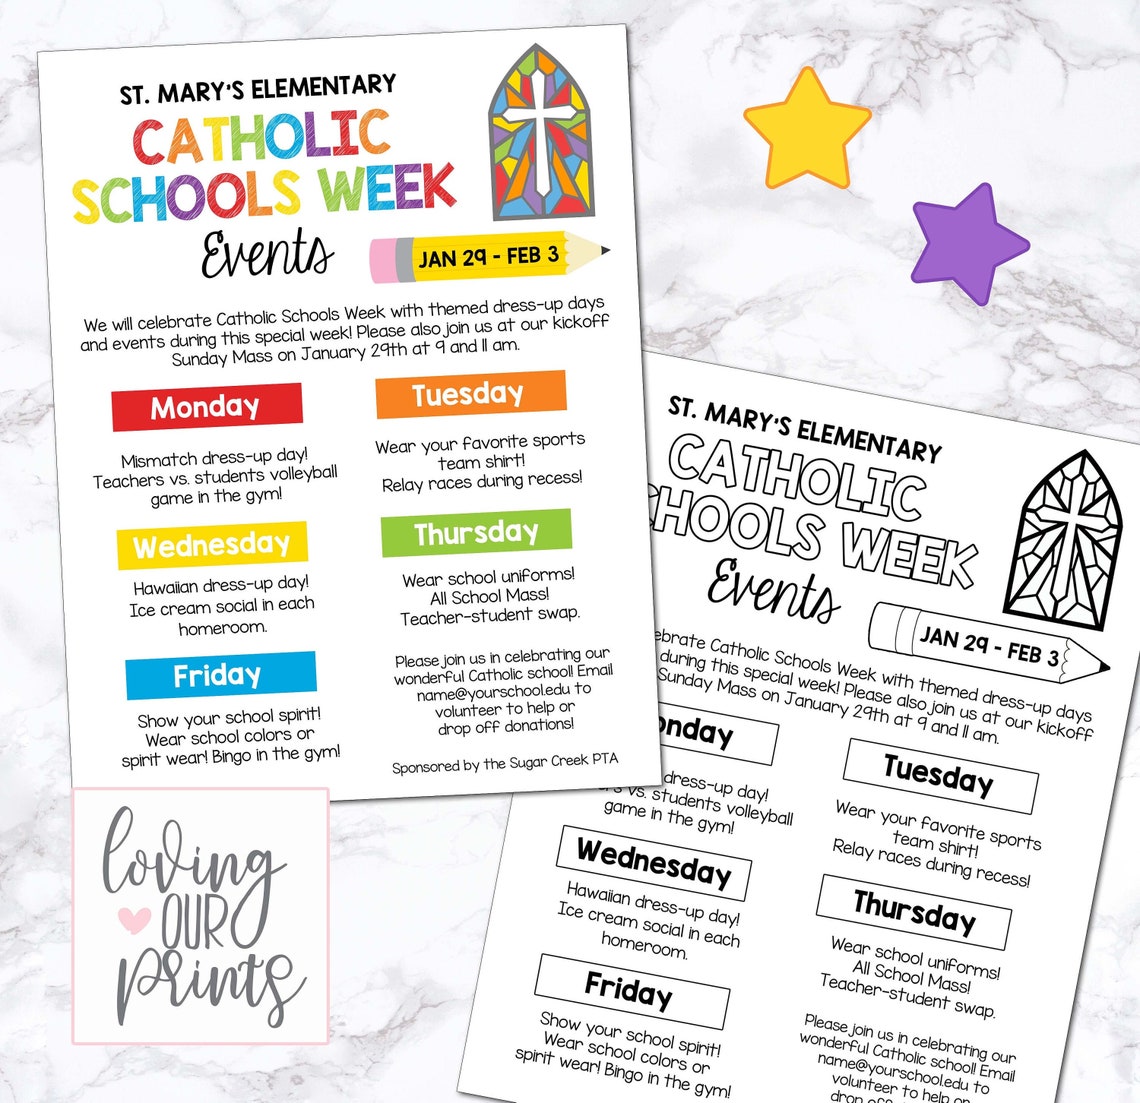 ST. MARY'S ELEMENTARY
CATHOLIC
SCHOOLS WEEK
Events
JAN 29 - FEB 3
We will celebrate Catholic Schools Week with themed dress-up days
and events during this special week! Please also join us at our kickoff
Sunday Mass on January 29th at 9 and 11 am.
Monday
Mismatch dress-up day!
Teachers vs. students volleyball
game in the gym!
Tuesday
Wear your favorite sports
team shirt!
Relay races during recess!
Wednesday
Hawaiian dress-up day!
Ice cream social in each
homeroom.
Thursday
Wear school uniforms!
All School Mass!
Teacher-student swap.
Friday
Show your school spirit!
Wear school colors or
spirit wear! Bingo in the gym!
Please join us in celebrating our
wonderful Catholic school! Email
name@yourschool.edu to
volunteer to help or
drop off donations!
Sponsored by the Sugar Creek PTA
loving
OUR
prints
ST. MARY'S ELEMENTARY
CATHOLIC
CHOOLS WEEK
Events
JAN 29 - FEB 3
ebrate Catholic Schools Week with themed dress-up days
during this special week! Please also join us at our kickoff
Sunday Mass on January 29th at 9 and 11 am.
onday
dress-up day!
rs vs. students volleyball
game in the gym!
Tuesday
Wear your favorite sports
team shirt!
Relay races during recess!
Wednesday
Hawaiian dress-up day!
Ice cream social in each
homeroom.
Thursday
Wear school uniforms!
All School Mass!
Teacher-student swap.
Friday
Show your school spirit!
Wear school colors or
spirit wear! Bingo in the gym!
Please join us in celebrating our
wonderful Catholic school! Email
name@yourschool.edu to
volunteer to help or
drop off